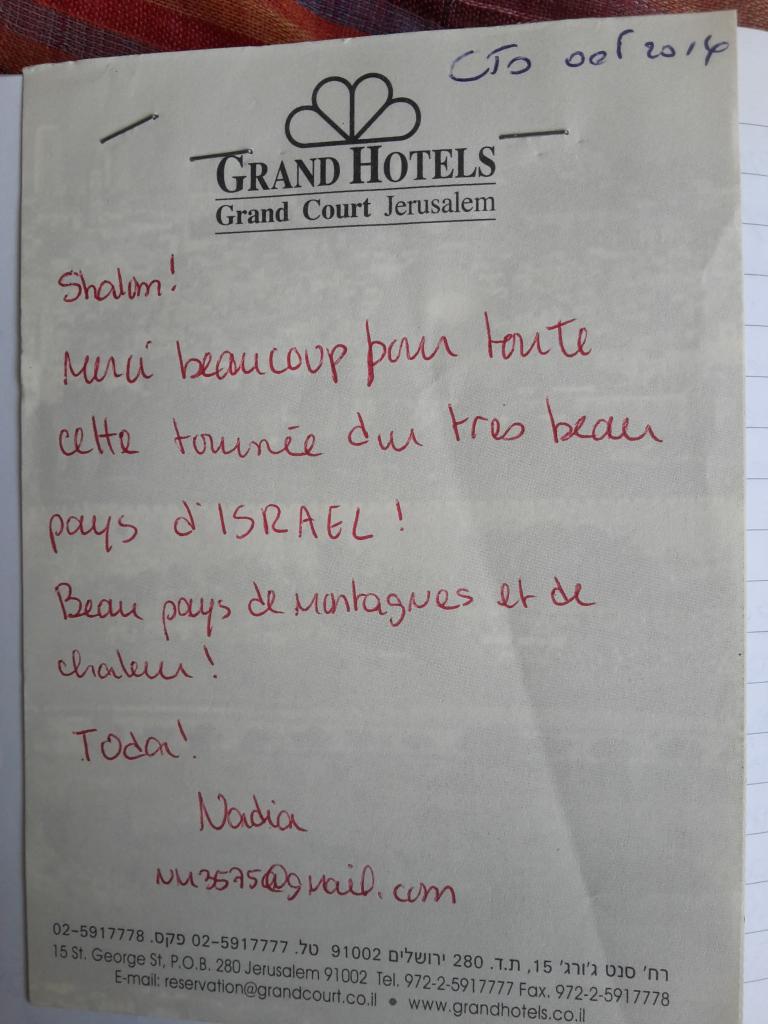 CTO oct 2014
GRAND HOTELS
Grand Court Jerusalem
Shalom!
Merci beaucoup pour toute
cette tournée du tres beau
pays d'ISRAEL!
Beau pays de Montagnes et de
chaleur!
Toda!
Nadia
NM3575@gmail.com
רח' סנט ג'ורג' 15, ת.ד. 280 ירושלים 91002 טל. 02-5917777 פקס. 02-5917778
15 St. George St, P.O.B. 280 Jerusalem 91002 Tel. 972-2-5917777 Fax. 972-2-5917778
E-mail: reservation@grandcourt.co.il • www.grandhotels.co.il